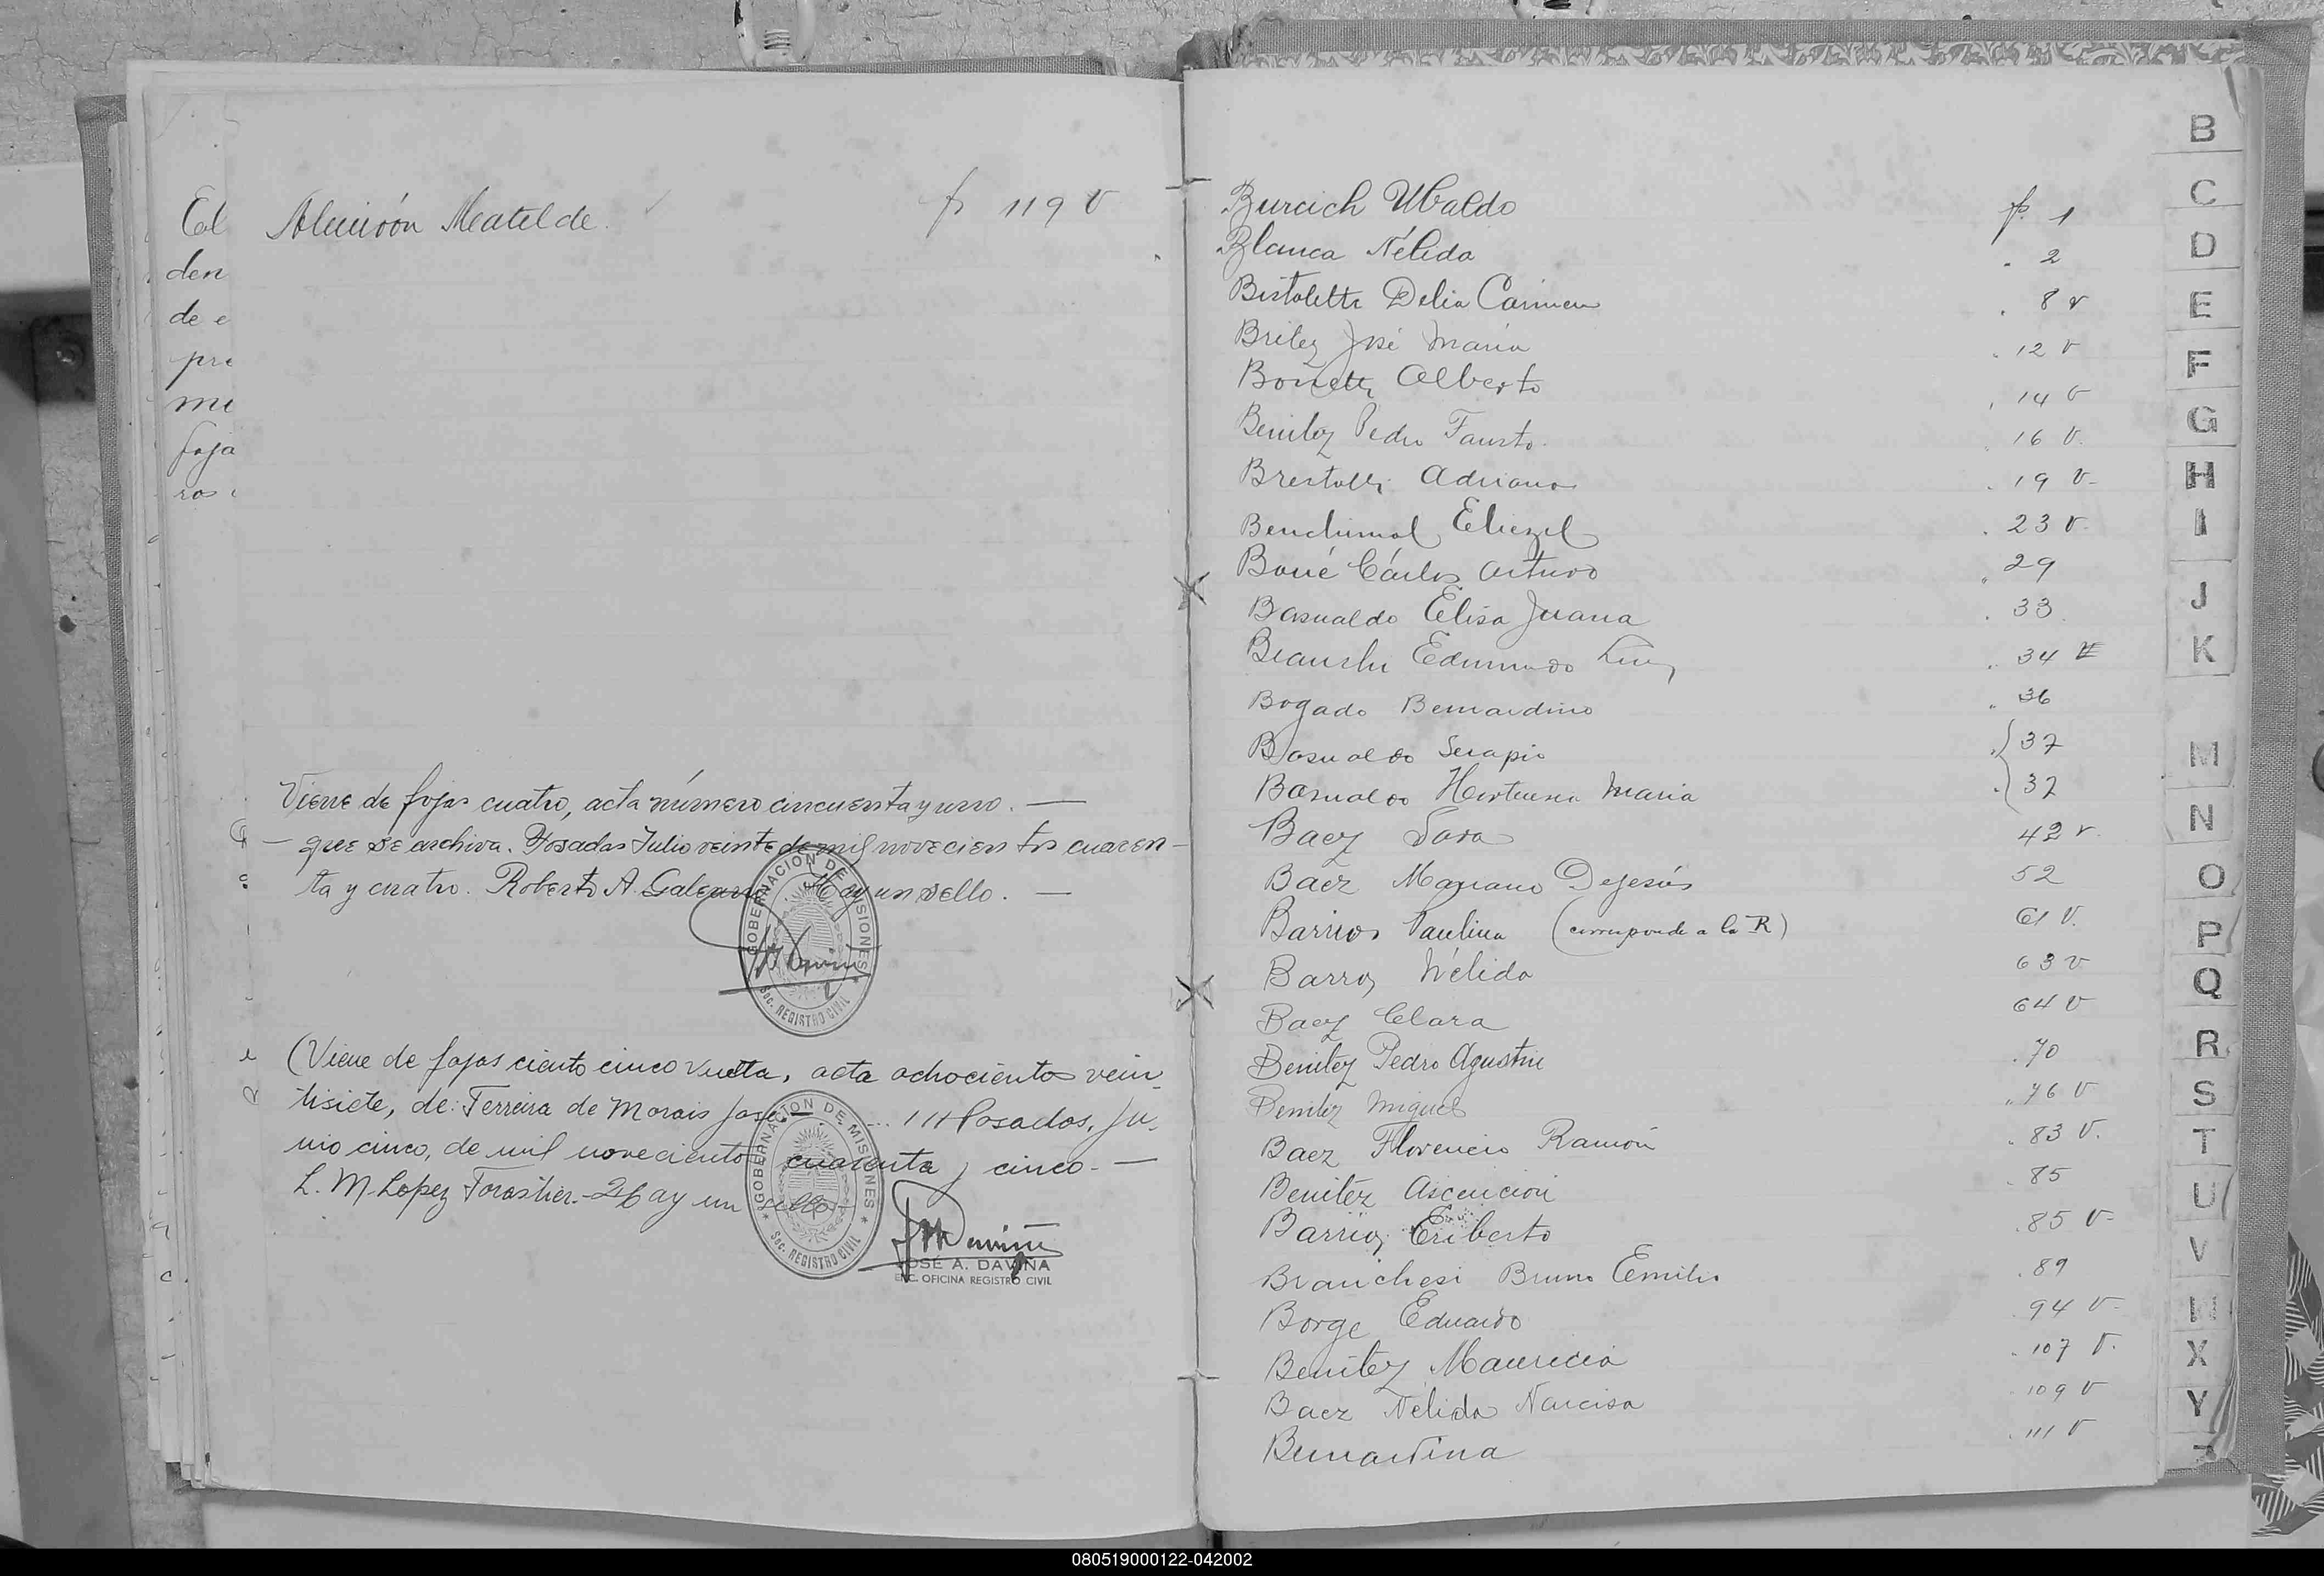 Alunión Matilde. fs 119 v
Col
den
de e
pre
mi
foja
ros
Viene de fojas cuatro, acta número cincuenta y uno. —
— que se archiva. Posadas Julio veinte de mil novecientos cuaren-
ta y cuatro. Roberto A. Galeano. Hay un sello. —
GOBERNACION DE MISIONES
Sec. REGISTRO CIVIL
(Viene de fojas ciento cinco vuelta, acta ochocientos vein-
tisiete, de: Ferreira de Morais José — ... Posadas, Ju-
nio cinco, de mil novecientos cuarenta y cinco. —
L. M. Lopez Forastier.- Hay un sello
GOBERNACION DE MISIONES
Sec. REGISTRO CIVIL
JOSÉ A. DAVIÑA
ENC. OFICINA REGISTRO CIVIL
Burcich Ubaldo fs. 1
Blanca Nélida " 2
Bistoletti Delia Carmen " 8 v
Britez José María " 12 v
Bonetti Alberto " 14 v
Benitez Pedro Fausto " 16 v.
Brestolli Adriano " 19 v-
Benchimol Eliezel " 23 v-
Boué Cárlos Arturo " 29
Basualdo Elisa Juana " 33
Bianchi Edmundo Luis " 34
Bogado Bernardino " 36
Basualdo Serapio " 37
Basualdo Hortensia Maria " 37
Baez Sara 42 v.
Baez Mariano Dejesús 52
Barrios Paulina (corresponde a la R) 61 v.
Barros Nélida 63 v
Baez Clara 64 v
Benitez Pedro Agustin " 70
Benitez Miguel " 76 v
Baez Florencio Ramón " 83 v.
Benitez Ascencion " 85
Barrios Eriberto " 85 v-
Branchesi Bruno Emilio " 89
Borge Eduardo " 94 v-
Benitez Mauricia " 107 v.
Baez Nélida Narcisa " 109 v
Bernardina " 111 v
B
C
D
E
F
G
H
I
J
K
M
N
O
P
Q
R
S
T
U
V
X
Y
Z
080519000122-042002